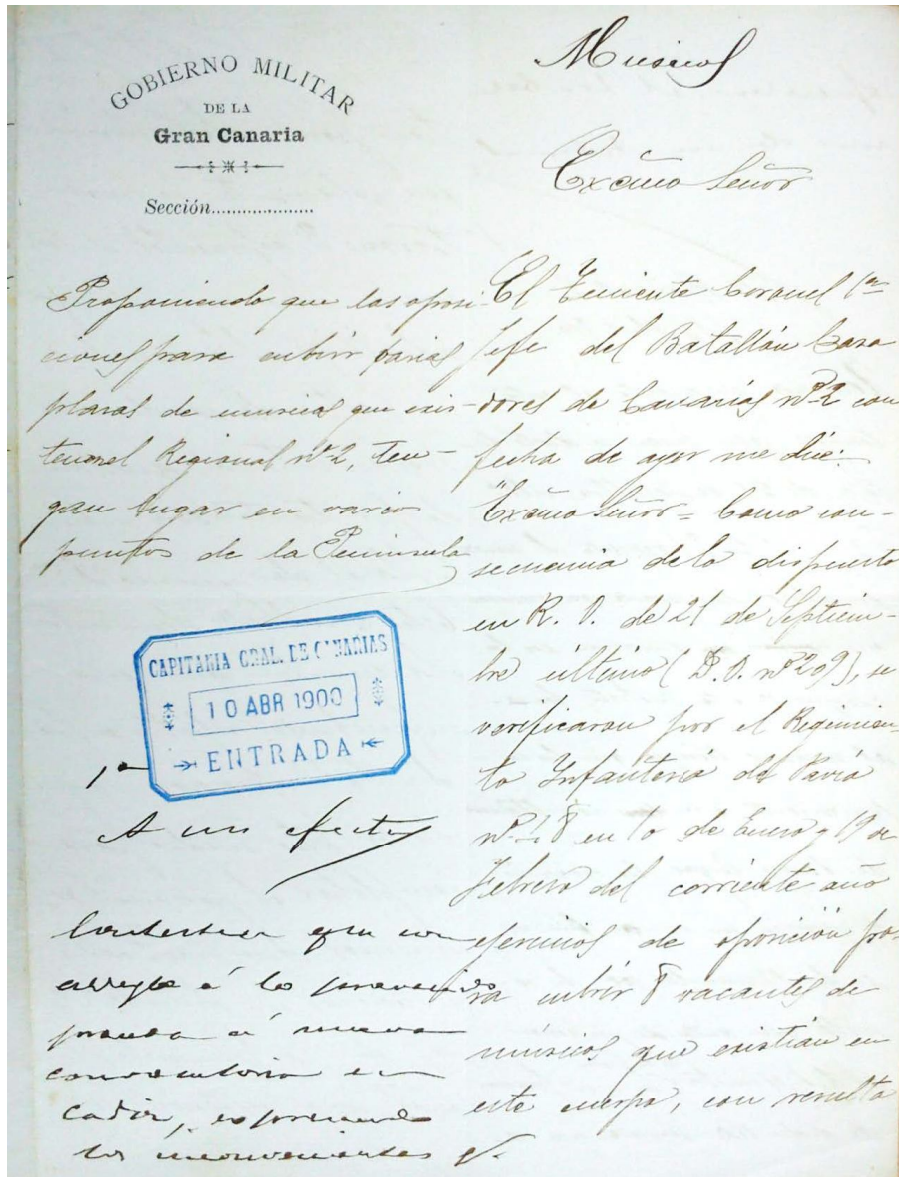 GOBIERNO MILITAR
DE LA
Gran Canaria
Sección....................
Proponiendo que las oposi-
ciones para cubrir varias
plazas de musicos que exis-
ten en el Regional nº 2, ten-
gan lugar en varios
puntos de la Peninsula
CAPITANIA GRAL. DE CANARIAS
10 ABR 1900
ENTRADA
1ª
A sus efectos
Contestese que con
arreglo á lo prevenido
proceda á nueva
convocatoria en
Cadiz, exponiendo
los inconvenientes
Musicos
Excmo Señor
El Teniente Coronel 1er
Jefe del Batallón Caza
dores de Canarias nº 2 con
fecha de ayer me dice:
"Excmo Señor = Como con-
secuencia de lo dispuesto
en R. O. de 21 de Septiem-
bre último (D. O. nº 209), se
verificaron por el Regimien-
to Infantería de Pavía
nº 48 en 10 de Enero y 19 de
Febrero del corriente año
ejercicios de oposición pa-
ra cubrir 8 vacantes de
músicos que existían en
este cuerpo, con resulta